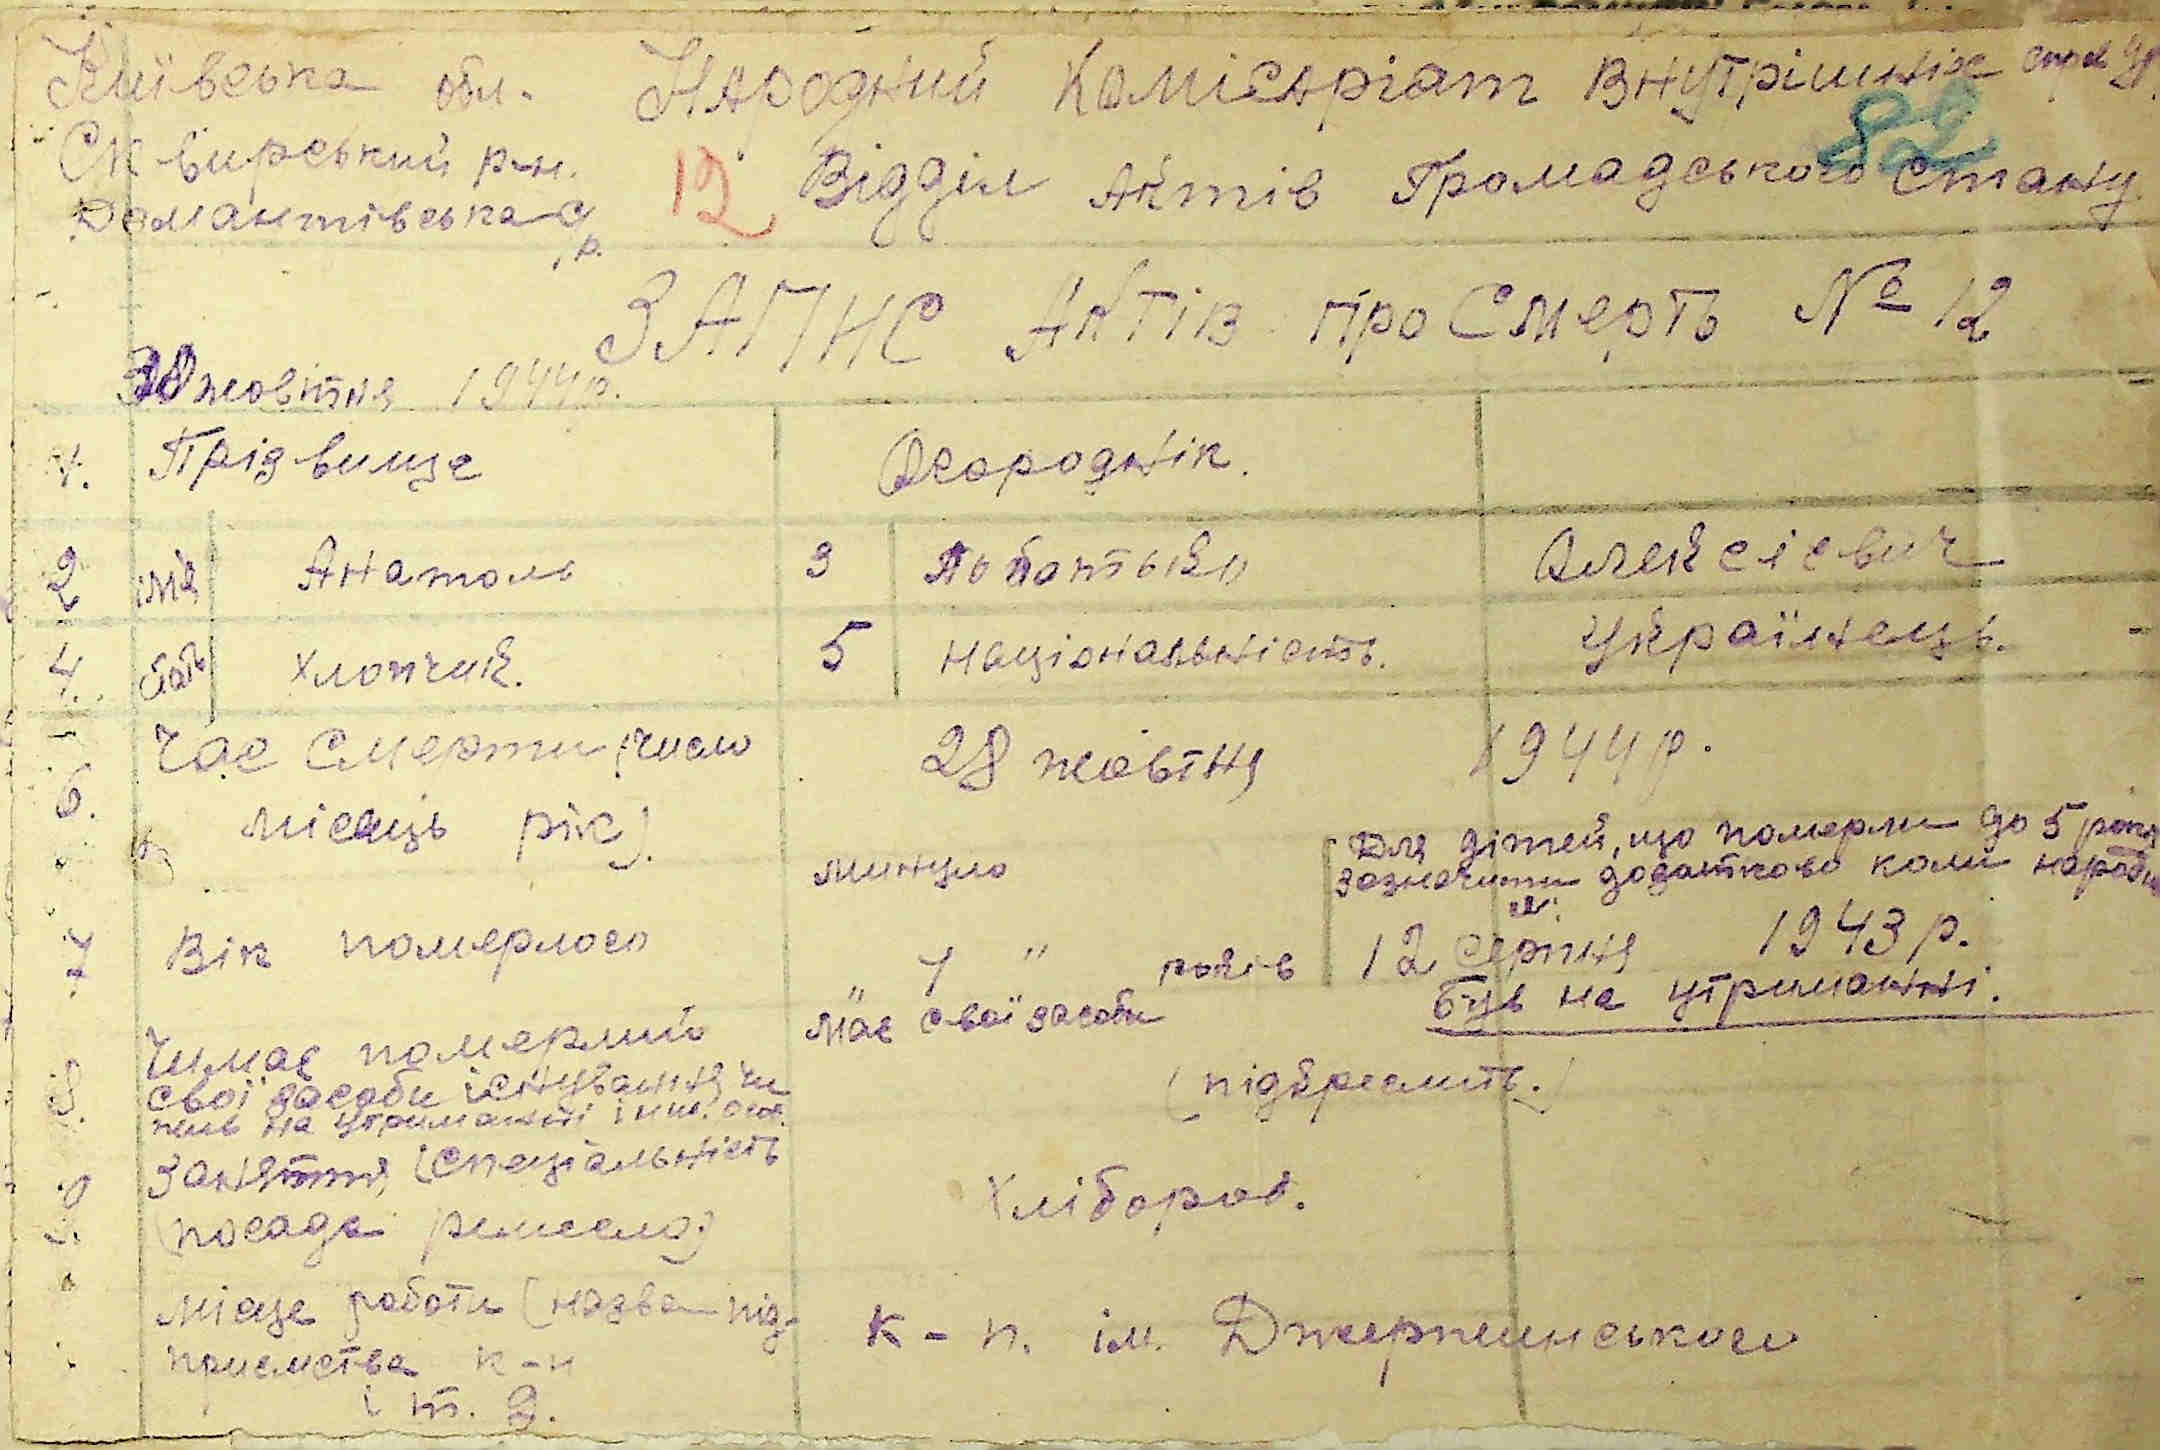 Київська обл. Народний Комісаріат Внутрішніх справ
Сквирський р-н. 12 Відділ Актів Громадського Стану 82
Домантівська с/р.
ЗАПИС Актів про Смерть № 12
30 жовтня 1944 р.
1. Прізвище Огороднік.
2 імя Анатоль 3 по батькю Олексієвич
4. стать хлопчик. 5 національність. Українець.
6. Час Смерти (число 28 жовтня 1944 р.
місяць рік).
минуло Для дітей, що померли до 5 років
зазначити додатково коли народи
ся.
7 Вік померлого 1 " років 12 серпня 1943 р.
8. Чи має померлий Має свої засоби був на утриманні.
свої засоби існування чи (підкреслить.)
був на утриманні інш. осіб.
9. Заняття, (спеціальність Хлібороб.
(посада ремесло)
Місце работи (назва під- к-п. ім. Джержинського
приємства к-п
і т. д.